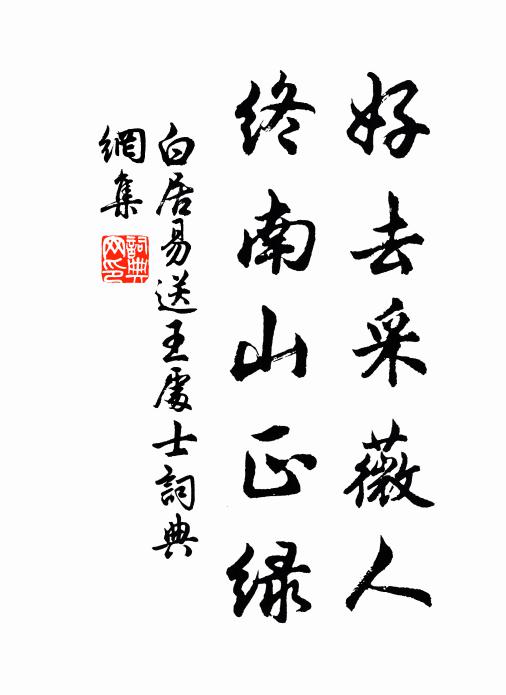 好去采薇人
终南山正绿
白居易送王處士詞典
網集
詞典
网印